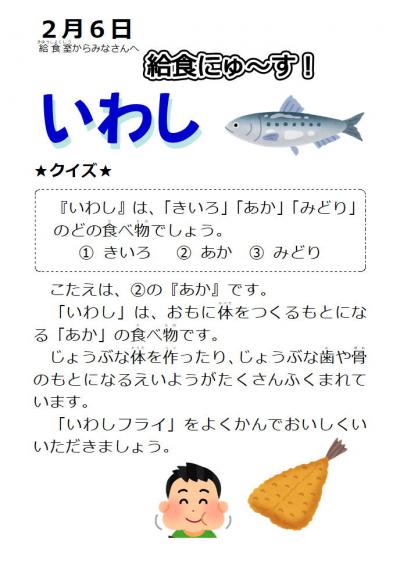 2月6日
給食室からみなさんへ
給食にゅ~す!
いわし
★クイズ★
『いわし』は、「きいろ」「あか」「みどり」
のどの食べ物でしょう。
① きいろ ② あか ③ みどり
こたえは、②の『あか』です。
「いわし」は、おもに体をつくるもとにな
る「あか」の食べ物です。
じょうぶな体を作ったり、じょうぶな歯や骨
のもとになるえいようがたくさんふくまれて
います。
「いわしフライ」をよくかんでおいしくい
いただきましょう。